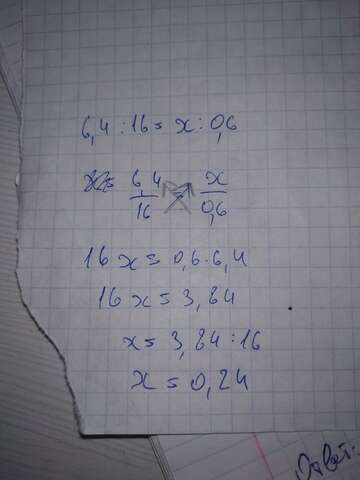 6,4 : 16 = x : 0,6
x = 6,4/16 = x/0,6
16x = 0,6 · 6,4
16x = 3,84
x = 3,84 : 16
x = 0,24
Ответ: